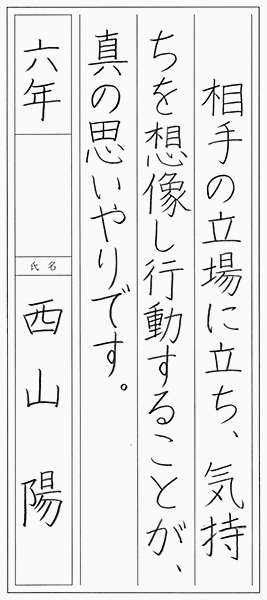 相手の立場に立ち、気持
ちを想像し行動することが、
真の思いやりです。
六年
氏名
西山陽